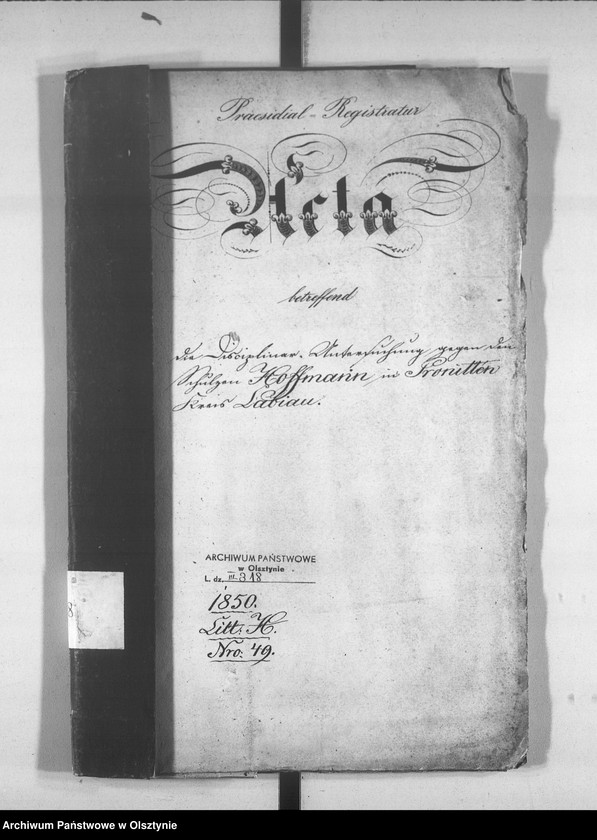 Præsidial-Registratur
Acta
betreffend
die Disciplinar-Untersuchung gegen den
Schulzen Hoffmann in Pronitten
Kreis Labiau.
ARCHIWUM PAŃSTWOWE
w Olsztynie
L. dz. III 318
1850.
Litt: H.
Nro: 49.
Archiwum Państwowe w Olsztynie